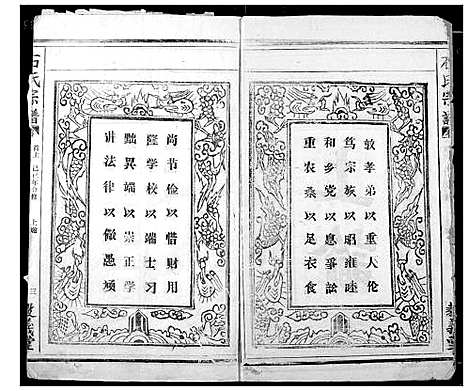 敦孝弟以重人伦
笃宗族以昭雍睦
和乡党以息爭訟
重农桑以足衣食
尚节俭以惜财用
隆学校以端士习
黜異端以崇正学
讲法律以儆愚顽
石氏宗譜
石氏宗譜
首上
三
敦義堂